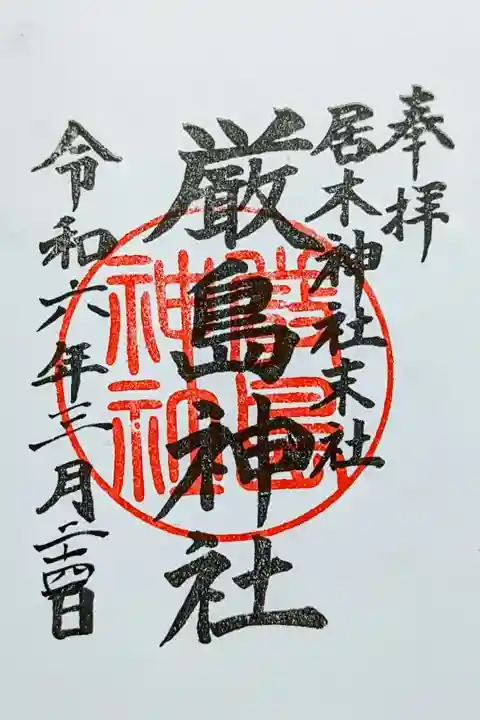 奉拝
居木神社末社
厳島神社
厳島
神社
令和六年三月二十四日